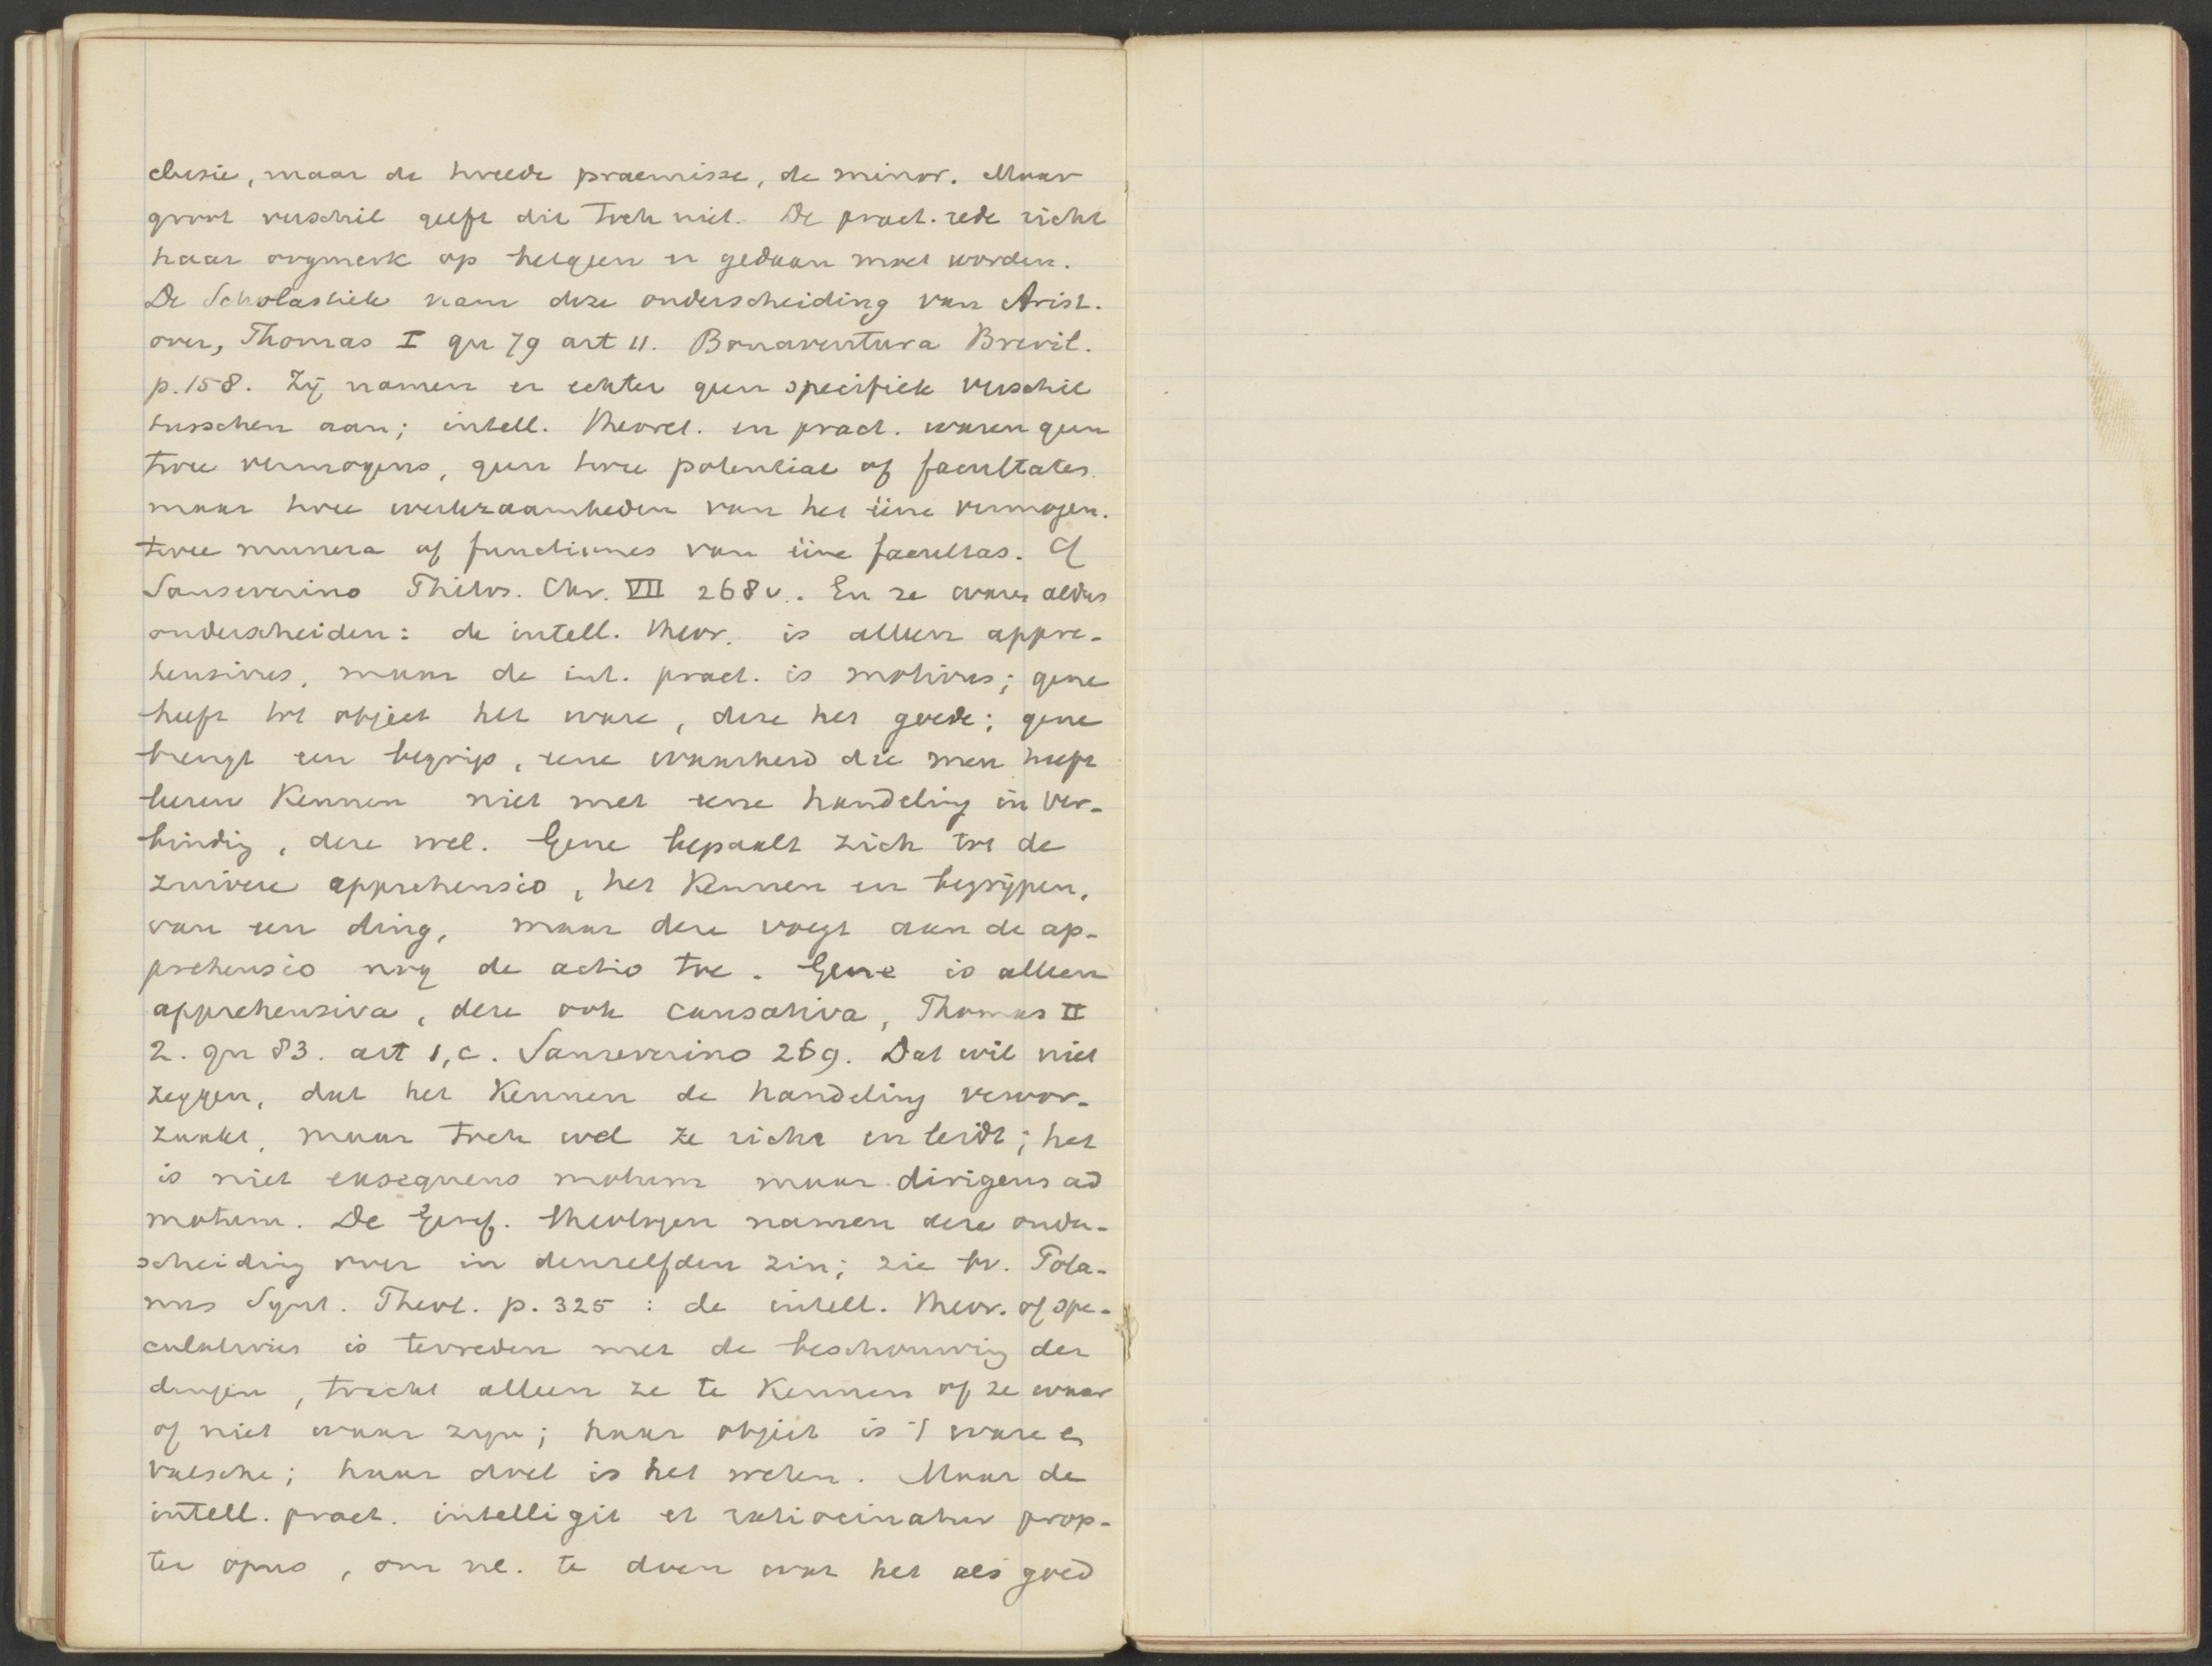 clusie, maar de tweede praemisse, de minor. Maar
groot verschil geeft dit toch niet. De pract. rede richt
haar oogmerk op hetgeen er gedaan moet worden.
De Scholastiek nam deze onderscheiding van Arist.
over, Thomas I qu 79 art 11. Bonaventura Brevil.
p. 158. Zij namen er echter geen specifiek verschil
tusschen aan; intell. theoret. en pract. waren geen
twee vermogens, geen twee potentiae of facultates.
maar twee werkzaamheden van het ééne vermogen.
twee munera of functiones van ééne facultas. Cf
Sanseverino Philos. Chr. VII 268 v. En ze waren aldus
onderscheiden: de intell. theor. is alleen appre-
hensivus, maar de int. pract. is motivus; gene
heeft tot object het ware, deze het goede; gene
brengt een begrip, eene waarheid die men heeft
leeren kennen niet met eene handeling in ver-
binding, deze wel. Gene bepaalt zich tot de
zuivere apprehensio, het kennen en begrijpen,
van een ding, maar deze voegt aan de ap-
prehensio nog de actio toe. Gene is alleen
apprehensiva, deze ook causativa, Thomas II
2. qu 83. art 1, c. Sanseverino 269. Dat wil niet
zeggen, dat het kennen de handeling veroor-
zaakt, maar toch wel ze richt en leidt; het
is niet exsequens motum maar dirigens ad
motum. De Geref. theologen namen deze onder-
scheiding over in denzelfden zin; zie bv. Pola-
nus Synt. Theol. p. 325 : de intell. theor. of spe-
culativus is tevreden met de beschouwing der
dingen, tracht alleen ze te kennen of ze waar
of niet waar zijn; haar object is 't ware en
valsche; haar doel is het weten. Maar de
intell. pract. intelligit et ratiocinatur prop-
ter opus, om nl. te doen wat het als goed